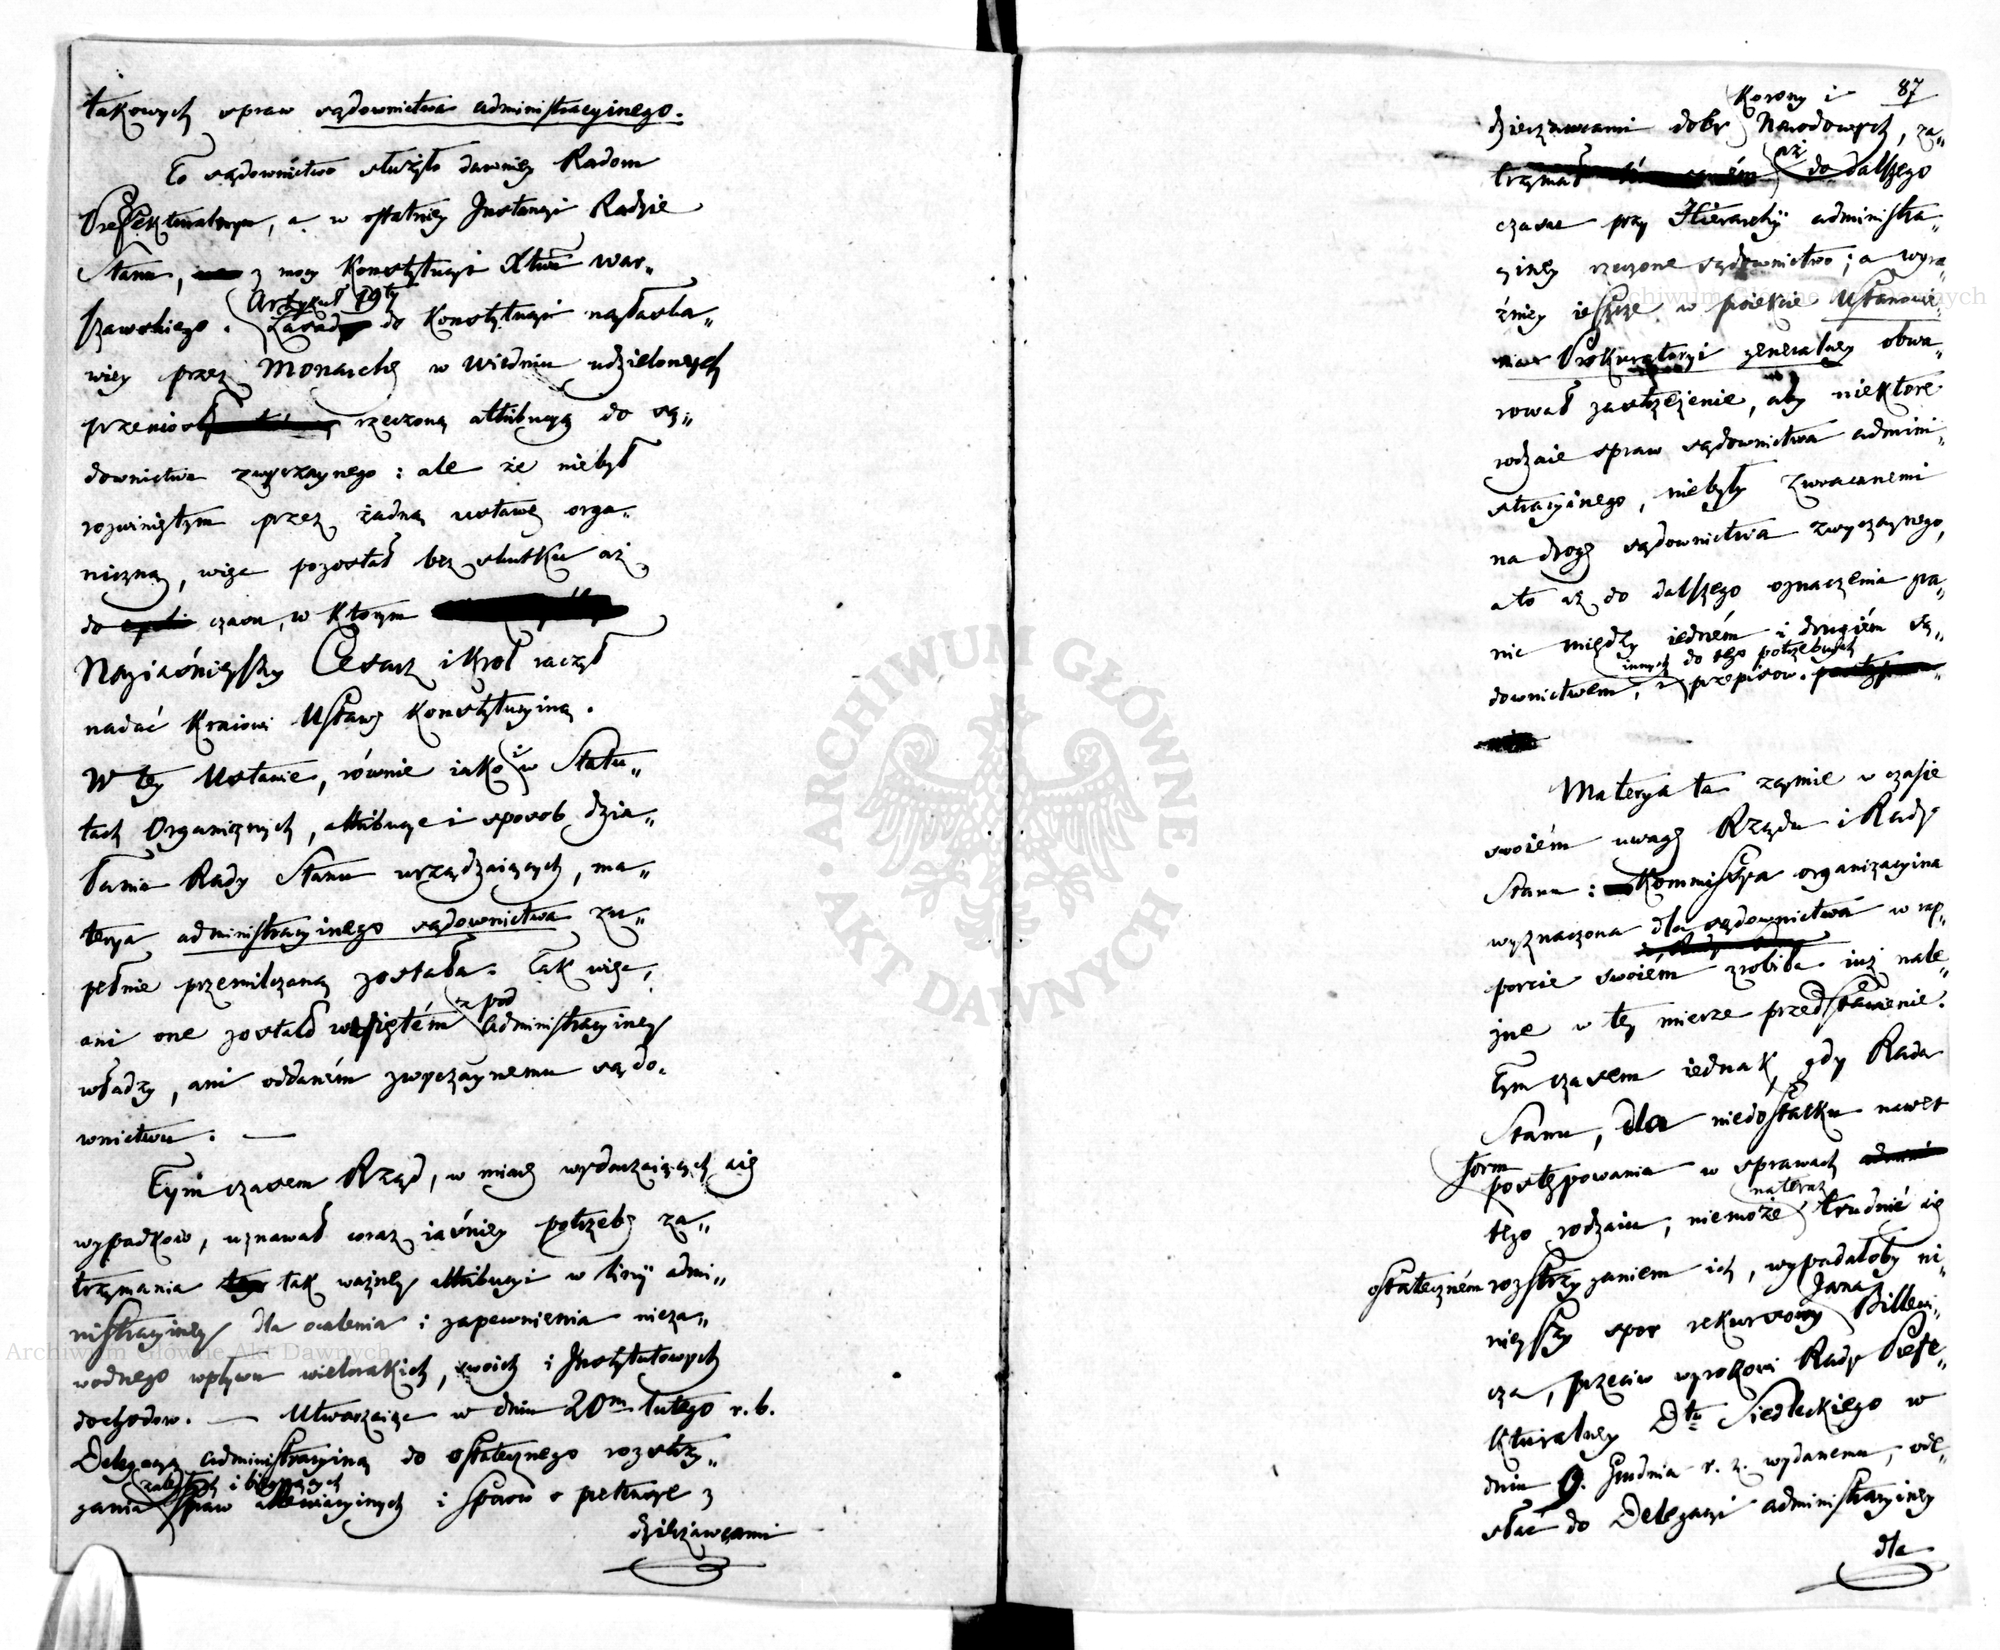 takowych spraw sądownictwa administracyinego.
To sądownictwo służyło dawniey Radom
Prefekturalnym, a w ostatniey Instancyi Radzie
Stanu, z mocy Konstytucyi Xtwa War„
szawskiego. Artykuł 19ty Zasad do Konstytucyi nayłaska„
wiey przez Monarchę w Wiedniu udzielonych
przeniosł rzeczoną attribucyą do są„
downictwa zwyczaynego: ale że niebył
rozwiniętym przez żadną ustawę orga„
niczną, więc pozostał bez skutku aż
do czasu, w którym
Nayiaśnieyszy Cesarz i Król raczył
nadać Kraiowi Ustawę Konstytucyiną.
W tey Ustawie, równie iako i w Statu„
tach Organicznych, attribucye i sposob dzia„
łania Rady Stanu urządzaiących, ma„
terya administracyinego sądownictwa zu„
pełnie przemilczaną została. Tak więc,
ani one zostało wziętém z pod administracyiney
władzy, ani oddaném zwyczaynemu sądo„
wnictwu. —
Tymczasem Rząd, w miarę wydarzaiących się
wypadkow, uznawał coraz iaśniey potrzebę za„
trzymania tak ważney attribucyi w linii admi„
nistracyiney dla ocalenia i zapewnienia nieza„
wodnego wpływu wielorakich, swoich i Instytutowych
dochodow. — Utwarzaiąc w dniu 20m lutego r. b.
Delegacyą administracyiną do ostatecznego rozstrzy„
gania zaległych i bieżących spraw allewiacyinych i sporow o pretensye z
dzierżawcami
87
dzierżawcami dobr Korony i Narodowych, za„
trzymał aż do dalszego
czasu przy Hierarchii administra„
cyiney rzeczone sądownictwo; a wyra„
źniey ieszcze w proiekcie Ustanowie„
nia Prokuratoryi generalney obwa„
rował zastrzeżenie, aby niektóre
rodzaie spraw sądownictwa admini„
stracyinego, niebyły zwracanemi
na drogę sądownictwa zwyczaynego,
a to aż do dalszego oznaczenia gra„
nic między iedném i drugiém są„
downictwem, i innych do tego potrzebnych przepisow.
Materya ta zaymie w czasie
swoiém uwagę Rządu i Rady
Stanu: Kommissya organizacyina
wyznaczona dla sądownictwa w rap„
porcie swoiém zrobiła iuż nale„
żne w tey mierze przedstawienie.
Tymczasem iednak, gdy Rada
Stanu, dla niedostatku nawet
form postępowania w sprawach
tego rodzaiu, niemoże nateraz trudnić się
ostateczném rozstrzyganiem ich, wypadałoby ni„
nieyszy spor rekursowy Jana Billewi„
cza, przeciw wyrokowi Rady Prefe„
kturalney Dtu Siedleckiego w
dniu 9. Grudnia r. z. wydanemu, ode„
słać do Delegacyi administracyiney
dla